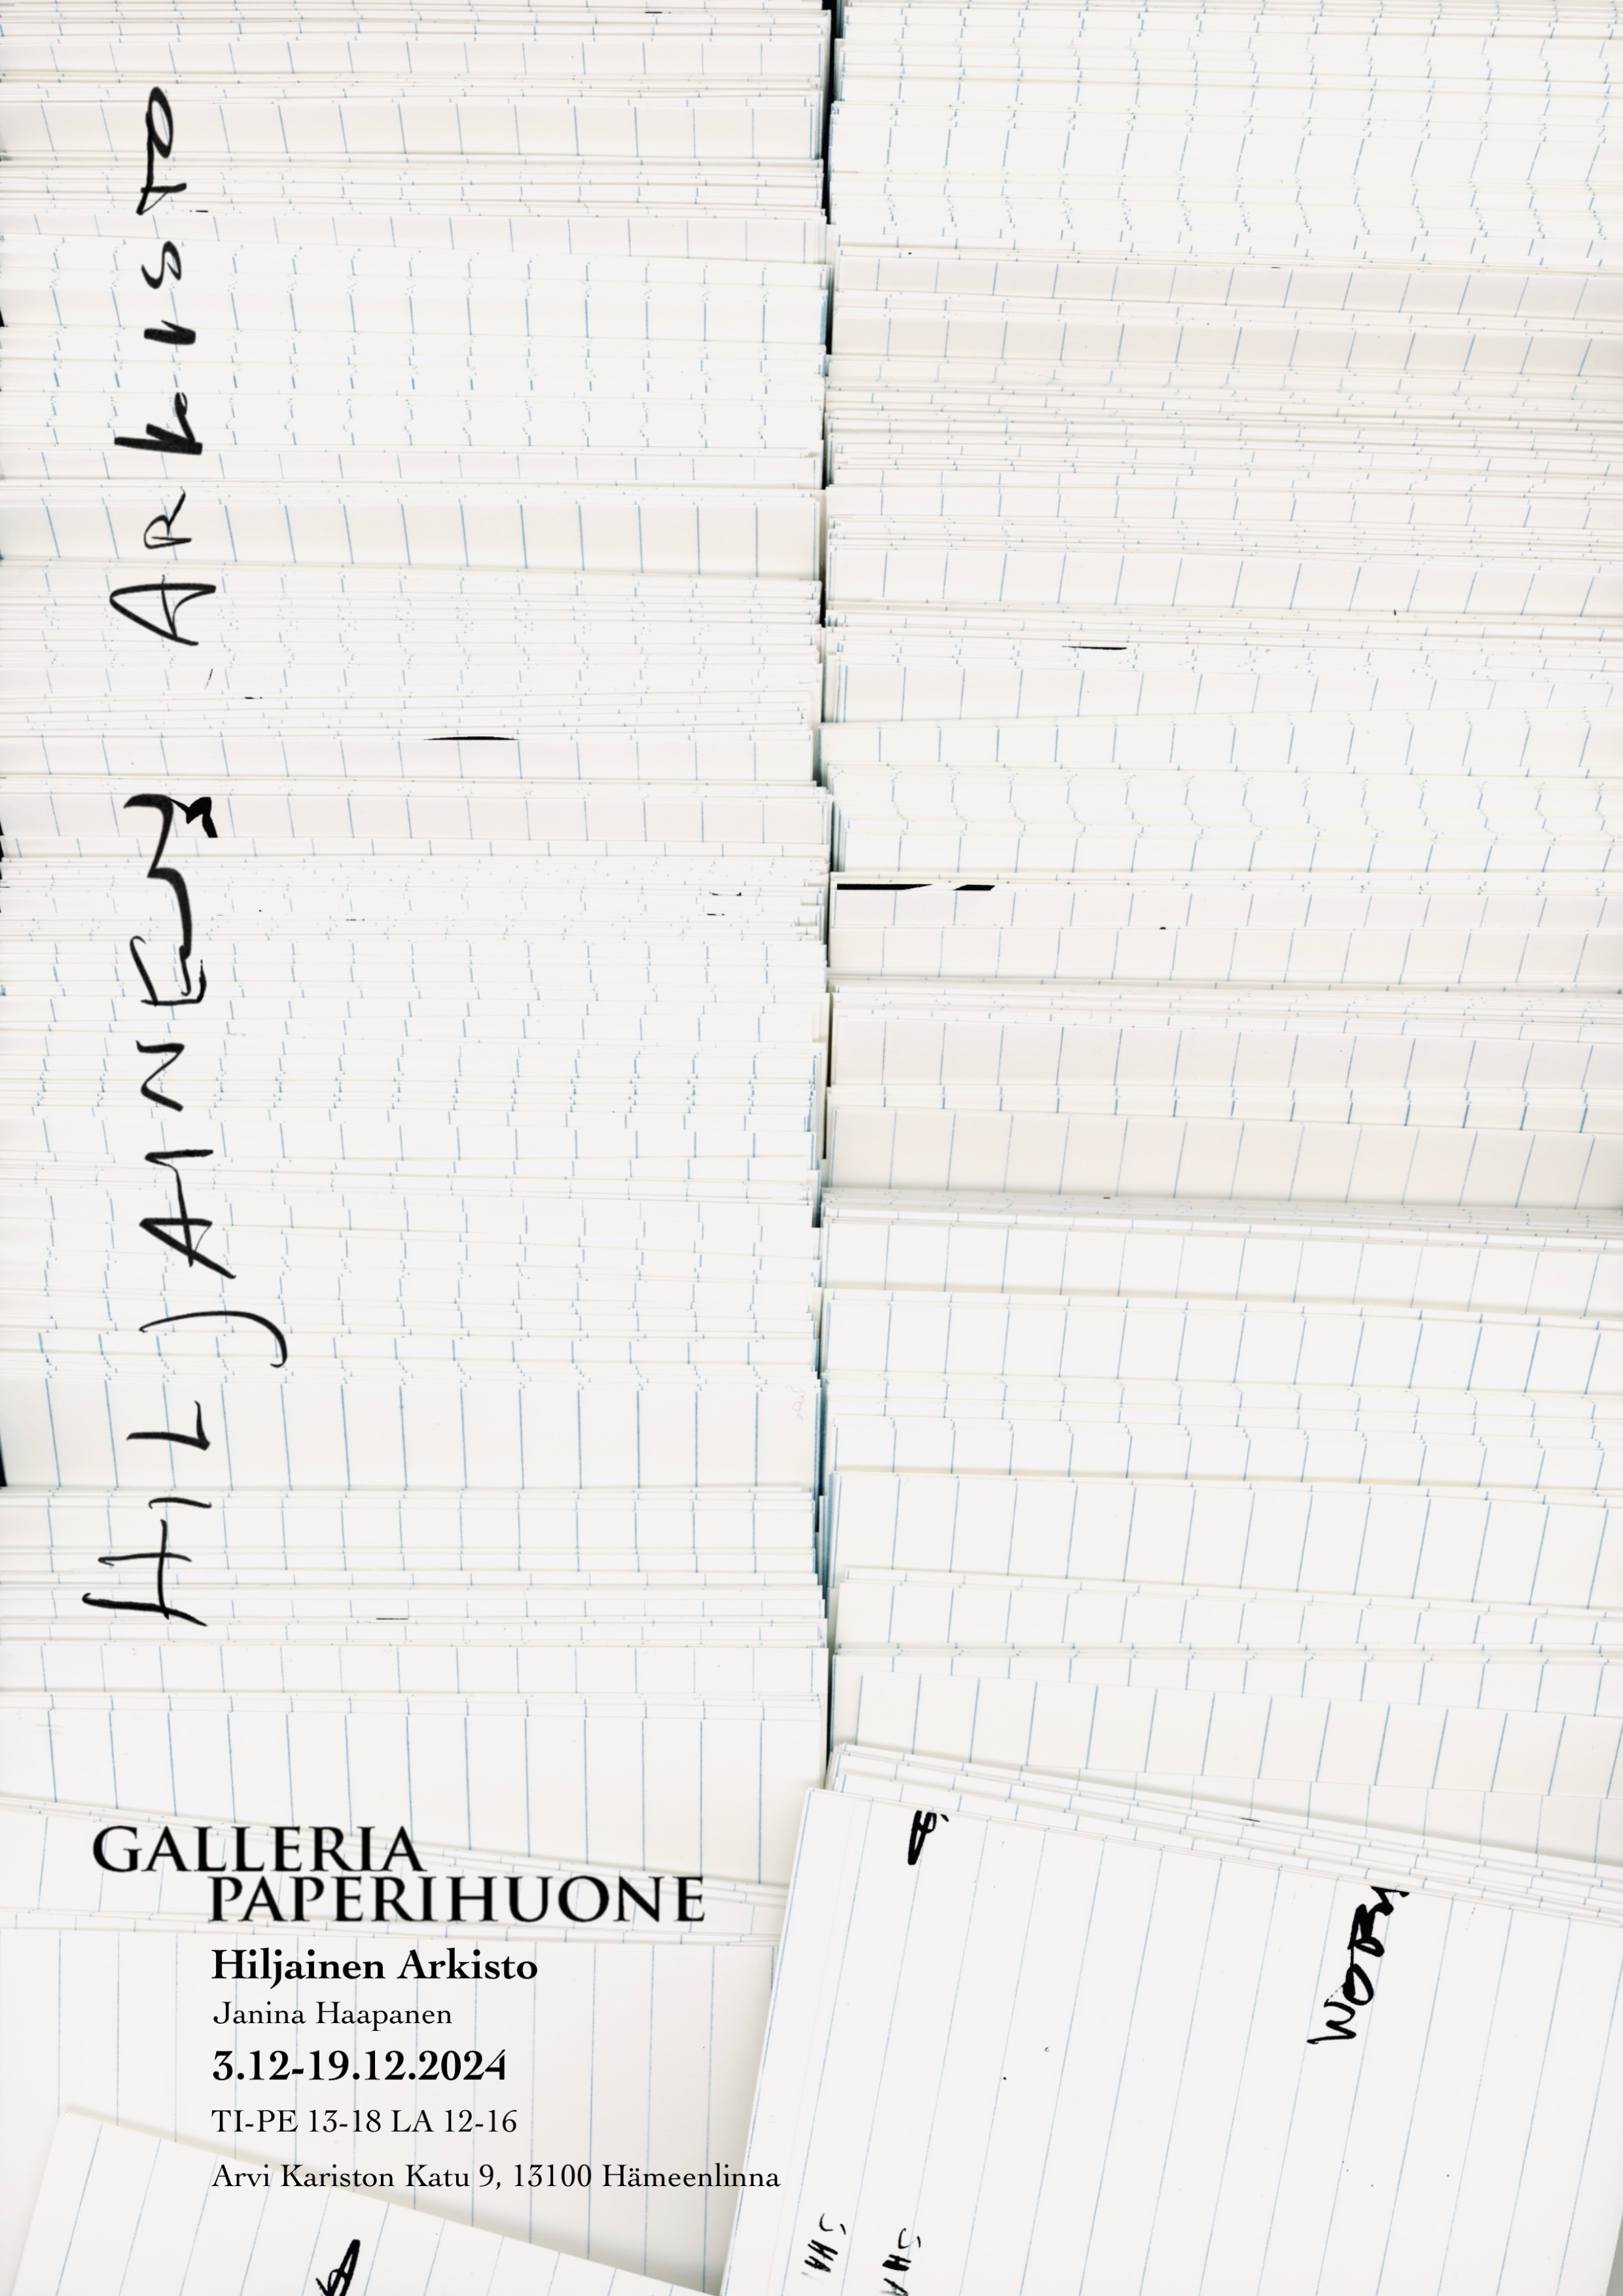 HILJAINEN ARKISTO
GALLERIA
PAPERIHUONE
Hiljainen Arkisto
Janina Haapanen
3.12-19.12.2024
TI-PE 13-18 LA 12-16
Arvi Kariston Katu 9, 13100 Hämeenlinna